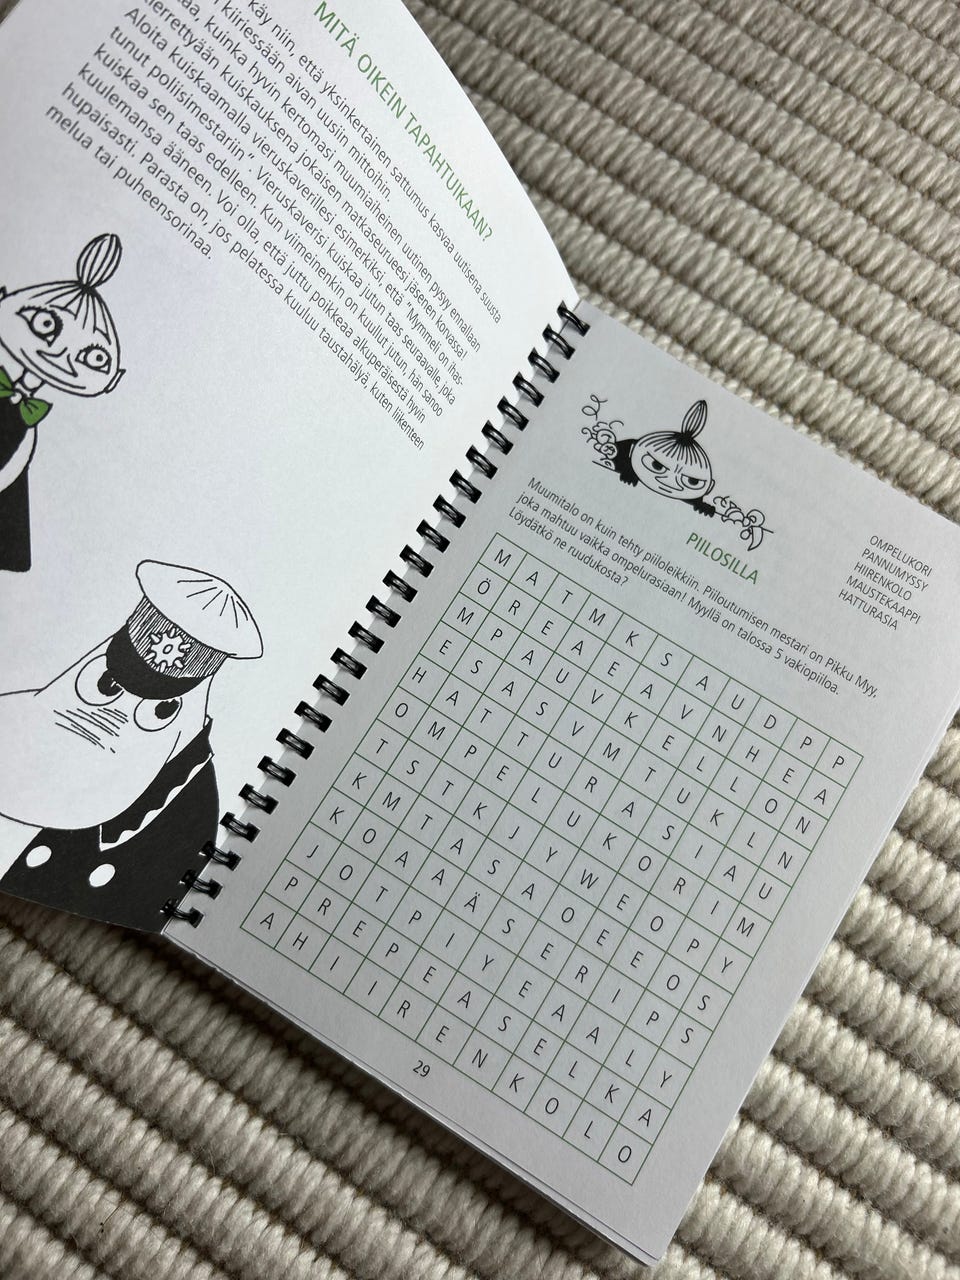 MITÄ OIKEIN TAPAHTUIKAAN?
käy niin, että yksinkertainen sattumus kasvaa uutisena suusta
kiiriessään aivan uusiin mittoihin.
kuinka hyvin kertomasi muumiaiheinen uutinen pysyy ennallaan
kierrettyään kuiskauksena jokaisen matkaseurueesi jäsenen korvassa!
Aloita kuiskaamalla vieruskaverillesi esimerkiksi, että "Mymmeli on ihas-
tunut poliisimestariin". Vieruskaverisi kuiskaa jutun taas seuraavalle, joka
kuiskaa sen taas edelleen. Kun viimeinenkin on kuullut jutun, hän sanoo
kuulemansa ääneen. Voi olla, että juttu poikkeaa alkuperäisestä hyvin
hupaisasti. Parasta on, jos pelatessa kuuluu taustahälyä, kuten liikenteen
melua tai puheensorinaa.
PIILOSILLA
Muumitalo on kuin tehty piiloleikkiin. Piiloutumisen mestari on Pikku Myy,
joka mahtuu vaikka ompelurasiaan! Myyllä on talossa 5 vakiopiiloa.
Löydätkö ne ruudukosta?
OMPELUKORI
PANNUMYSSY
HIIRENKOLO
MAUSTEKAAPPI
HATTURASIA
M A T M K S A U D P P
Ö R E A E A V N H E A
M P A U V K E L L O N
E S A S V M T U K L N
H A T T U R A S I A U
O M P E L U K O R I M
T S T K J Y W E O P Y
K M T A S A O E E O S
K O A A Ä S E R I P S
J O T P I Y E A A L Y
P R E P E A S E L K A
A H I I R E N K O L O
29